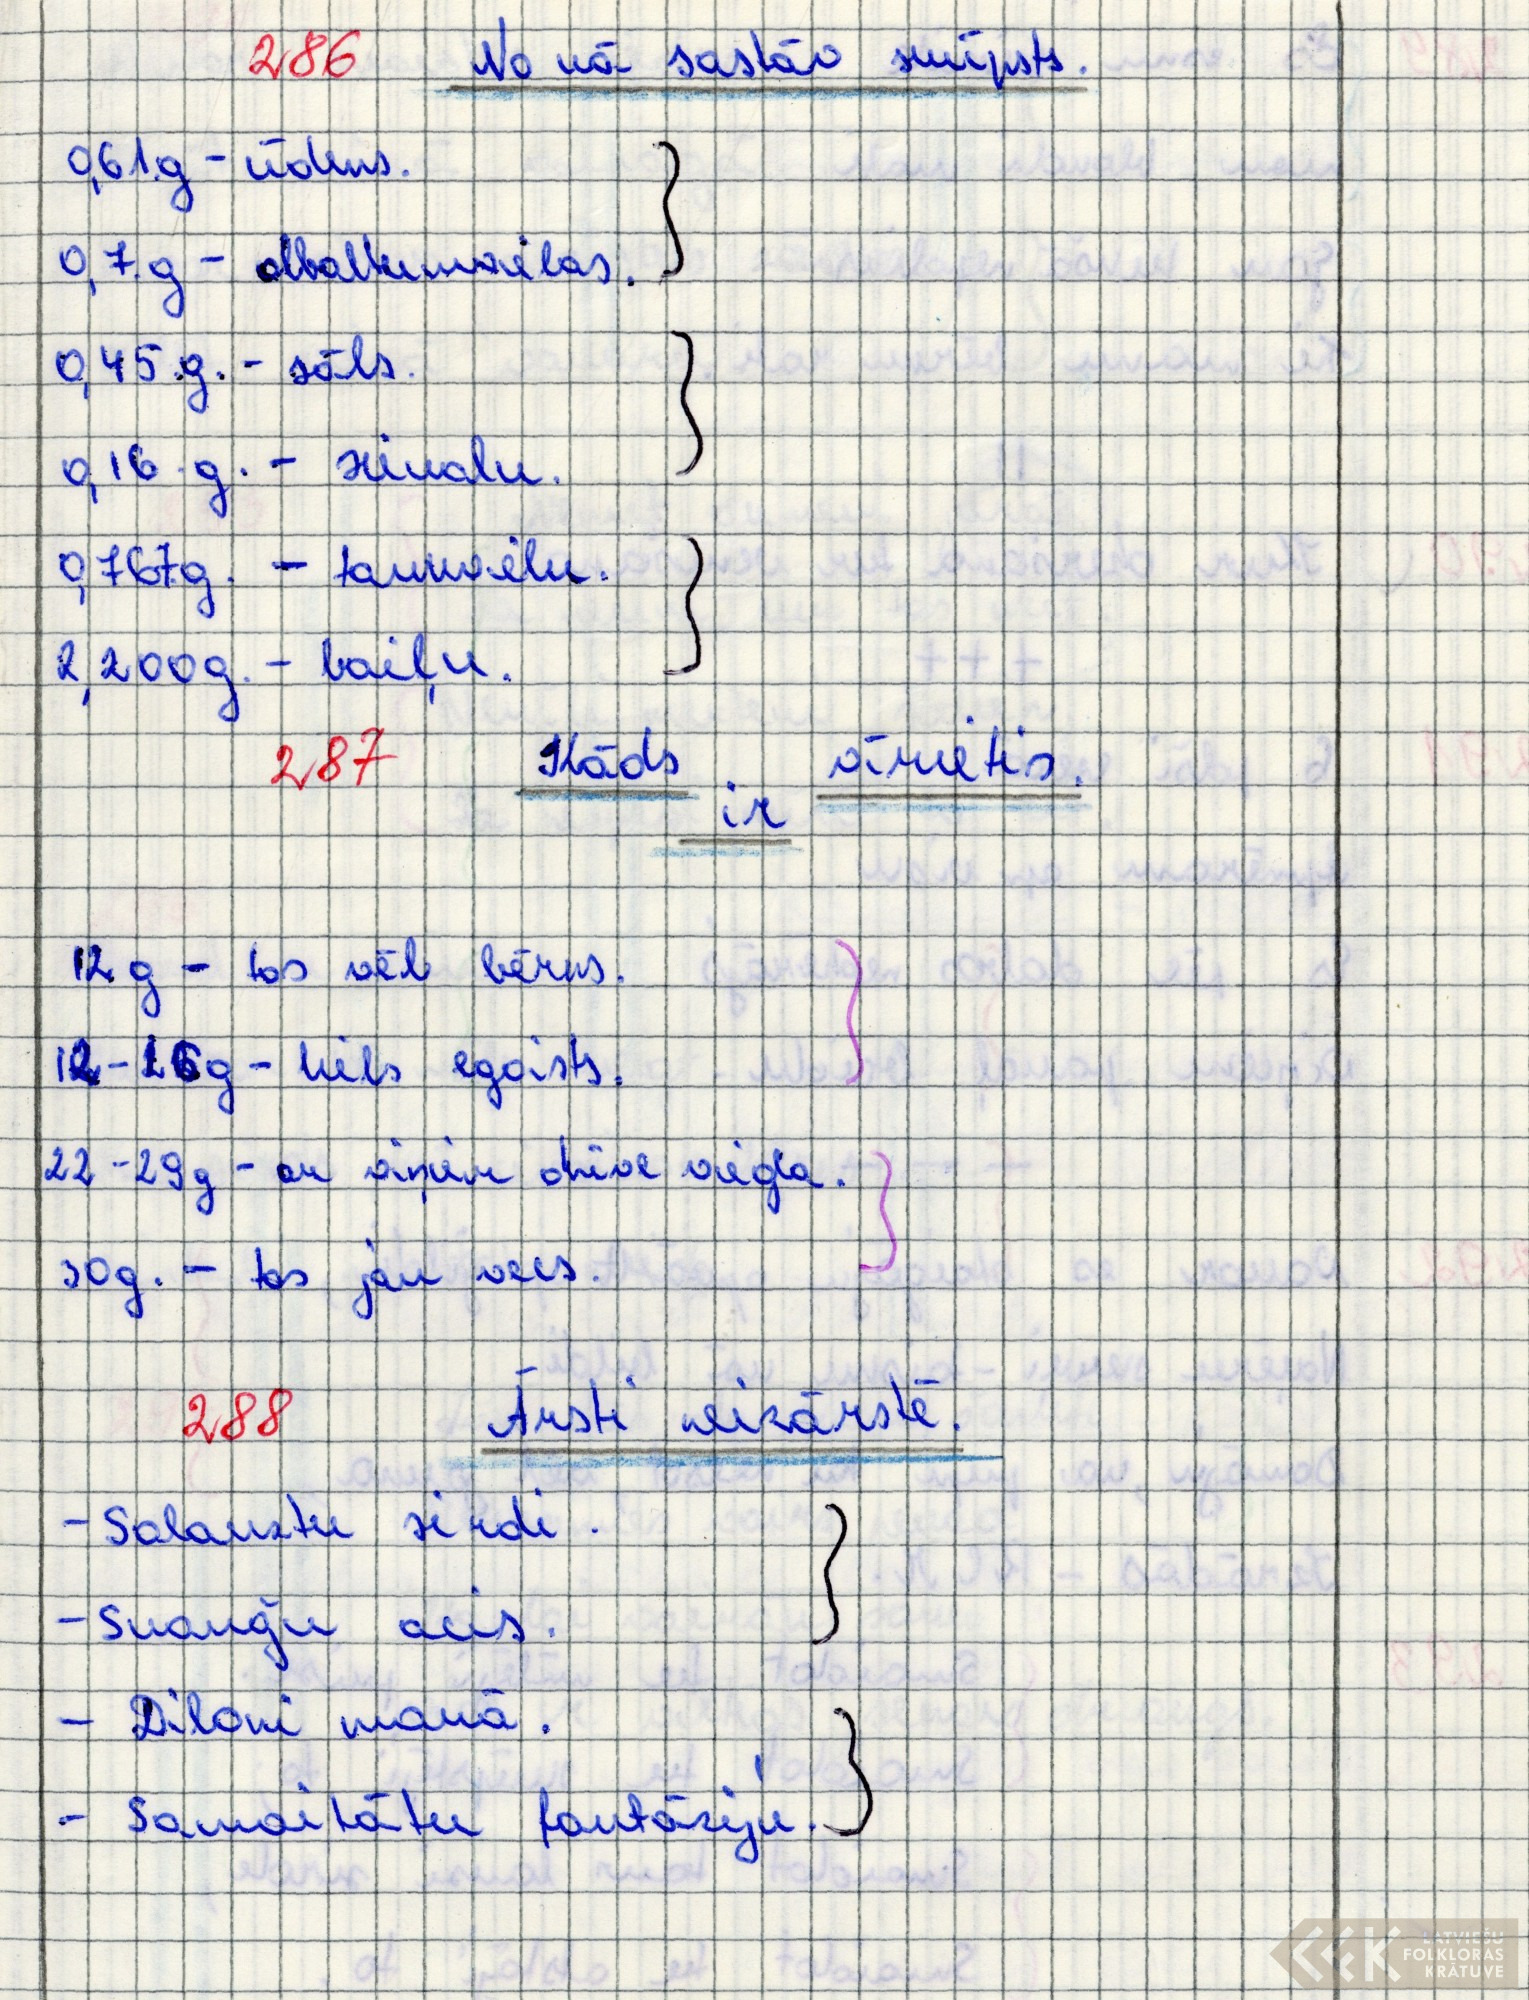 286 No kā sastāv skūpsts.
0,61.g - ūdens.
0,7.g - olbaltumvielas.
0,45.g. - sāls.
0,16.g. -
0,767g. - taukvielu.
2,200g. - baiļu.
287 Kāds vīrietis.
ir
12 g - tas vēl bērns.
12-16g - liels egoists.
22-29g - ar viņiem dzīve viegla.
30g. - tas jau vecs.
288 Ārsti neizārstē.
- Salauztu sirdi.
- Skauģu acis.
- Diloni makā.
- Samaitātu fantāziju.
LATVIEŠU
FOLKLORAS
KRĀTUVE